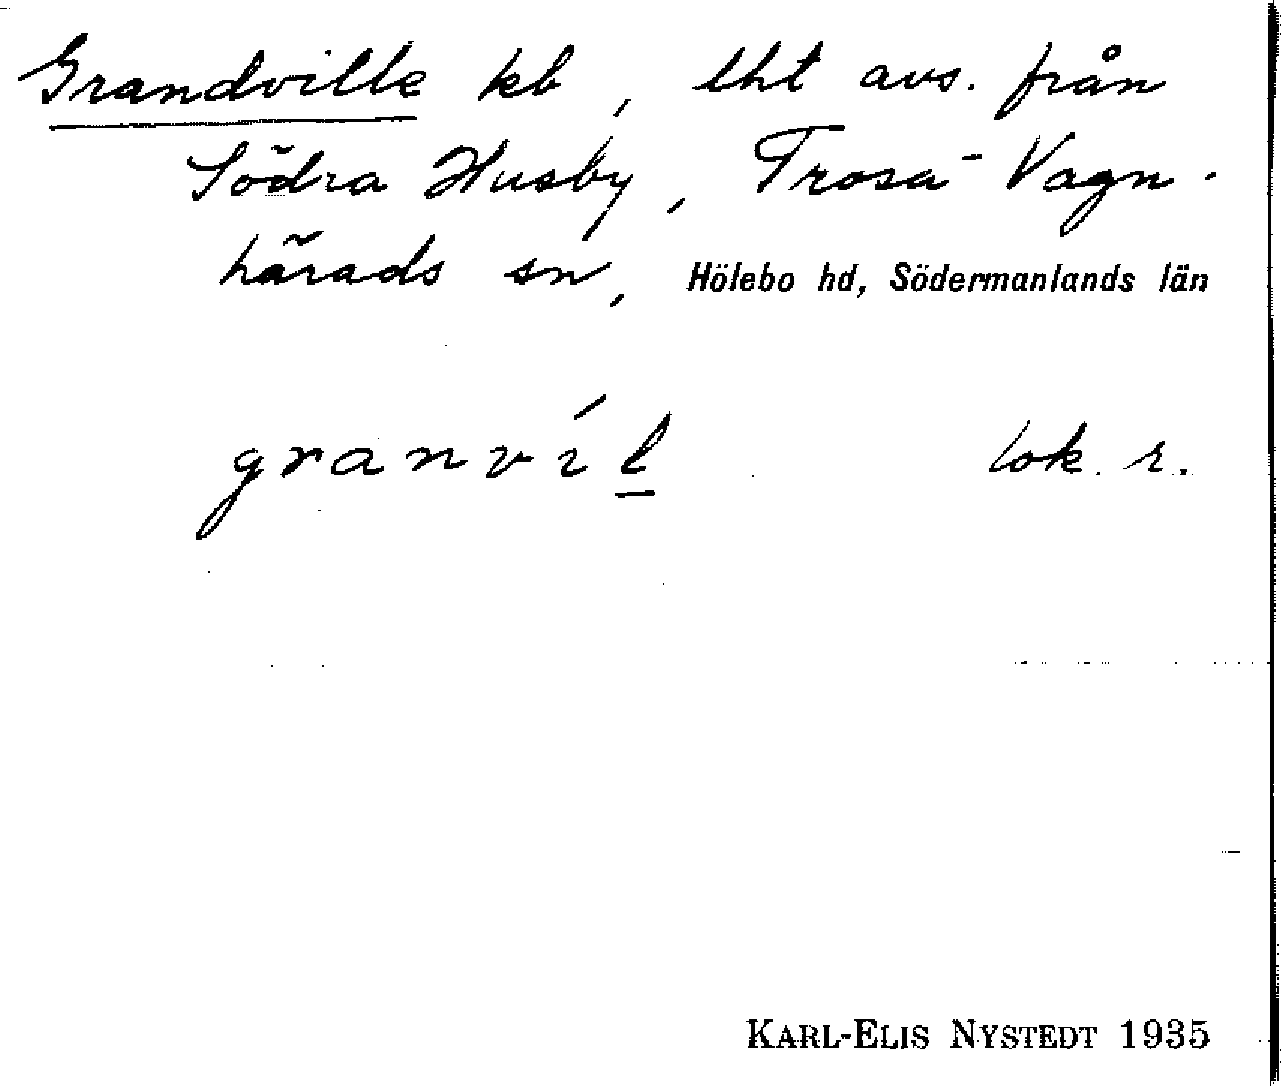 Grandville kb, lht avs. från
Södra Husby, Trosa-Vagn-
härads sn, Hölebo hd, Södermanlands län
granvíl lok. r.
KARL-ELIS NYSTEDT 1935